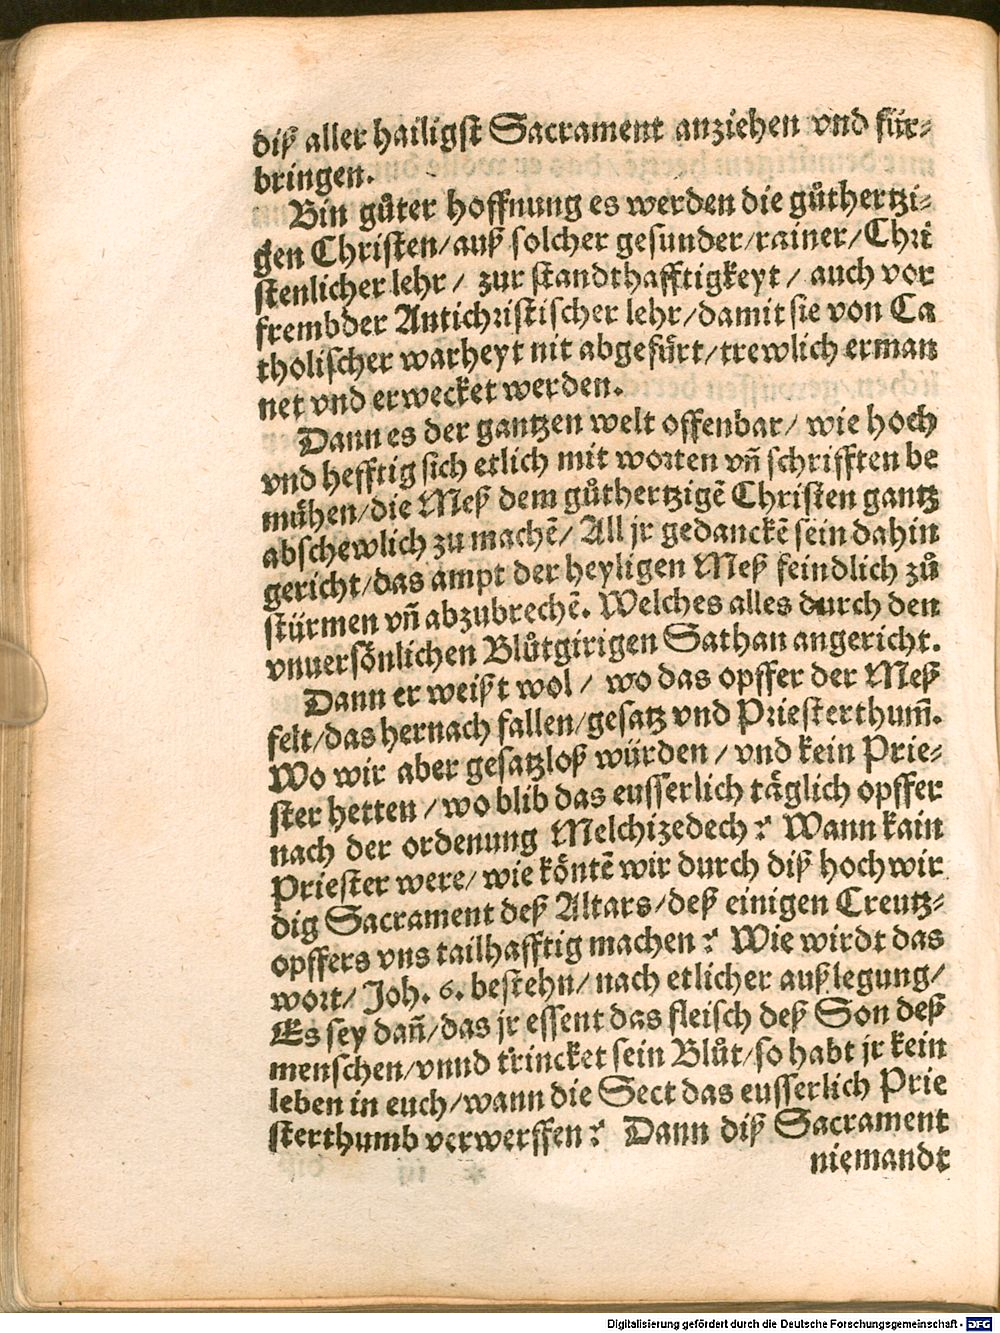 diß aller hailigst Sacrament anziehen vnd für-
bringen.
Bin gůter hoffnung es werden die gůthertzi-
gen Christen/auß solcher gesunder/rainer/Chri
stenlicher lehr/ zur standthafftigkeyt/ auch vor
frembder Antichristischer lehr/damit sie von Ca
tholischer warheyt nit abgefürt/trewlich erman
net vnd erwecket werden.
Dann es der gantzen welt offenbar/ wie hoch
vnd hefftig sich etlich mit worten vñ schrifften be
mühen/die Meß dem gůthertzigẽ Christen gantz
abschewlich zu machẽ/ All jr gedanckẽ sein dahin
gericht/das ampt der heyligen Meß feindlich zů
stürmen vñ abzubrechẽ. Welches alles durch den
vnuersönlichen Blůtgirigen Sathan angericht.
Dann er weißt wol/ wo das opffer der Meß
felt/das hernach fallen/gesatz vnd Priesterthum̃.
Wo wir aber gesatzloß würden/ vnd kein Prie-
ster hetten/wo blib das eusserlich täglich opffer
nach der ordenung Melchizedech? Wann kain
Priester were/ wie köntẽ wir durch diß hochwir
dig Sacrament deß Altars/deß einigen Creutz-
opffers vns tailhafftig machen? Wie wirdt das
wort/ Joh. 6. bestehn/nach etlicher außlegung/
Es sey dañ/das jr essent das fleisch deß Son deß
menschen/vnnd trincket sein Blůt/so habt jr kein
leben in euch/wann die Sect das eusserlich Prie
sterthumb verwerffen? Dann diß Sacrament
niemandt
Digitalisierung gefördert durch die Deutsche Forschungsgemeinschaft - DFG